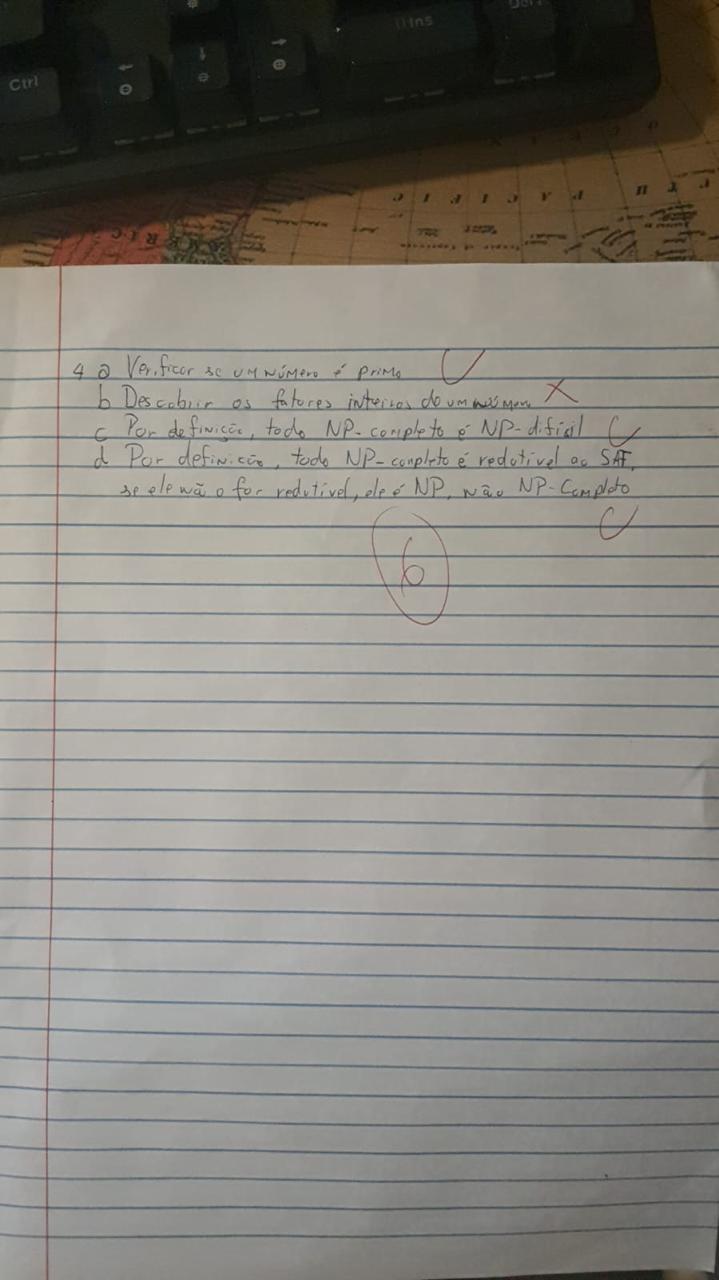 Ctrl
Ins
Del
P A C I F I C
4 a Verificar se um número é primo
b Descobrir os fatores inteiros do um número
c Por definição, todo NP-completo é NP-difísil
d Por definição, todo NP-completo é redutível ao SAT,
se ele não for redutível, ele é NP, não NP-Completo
6